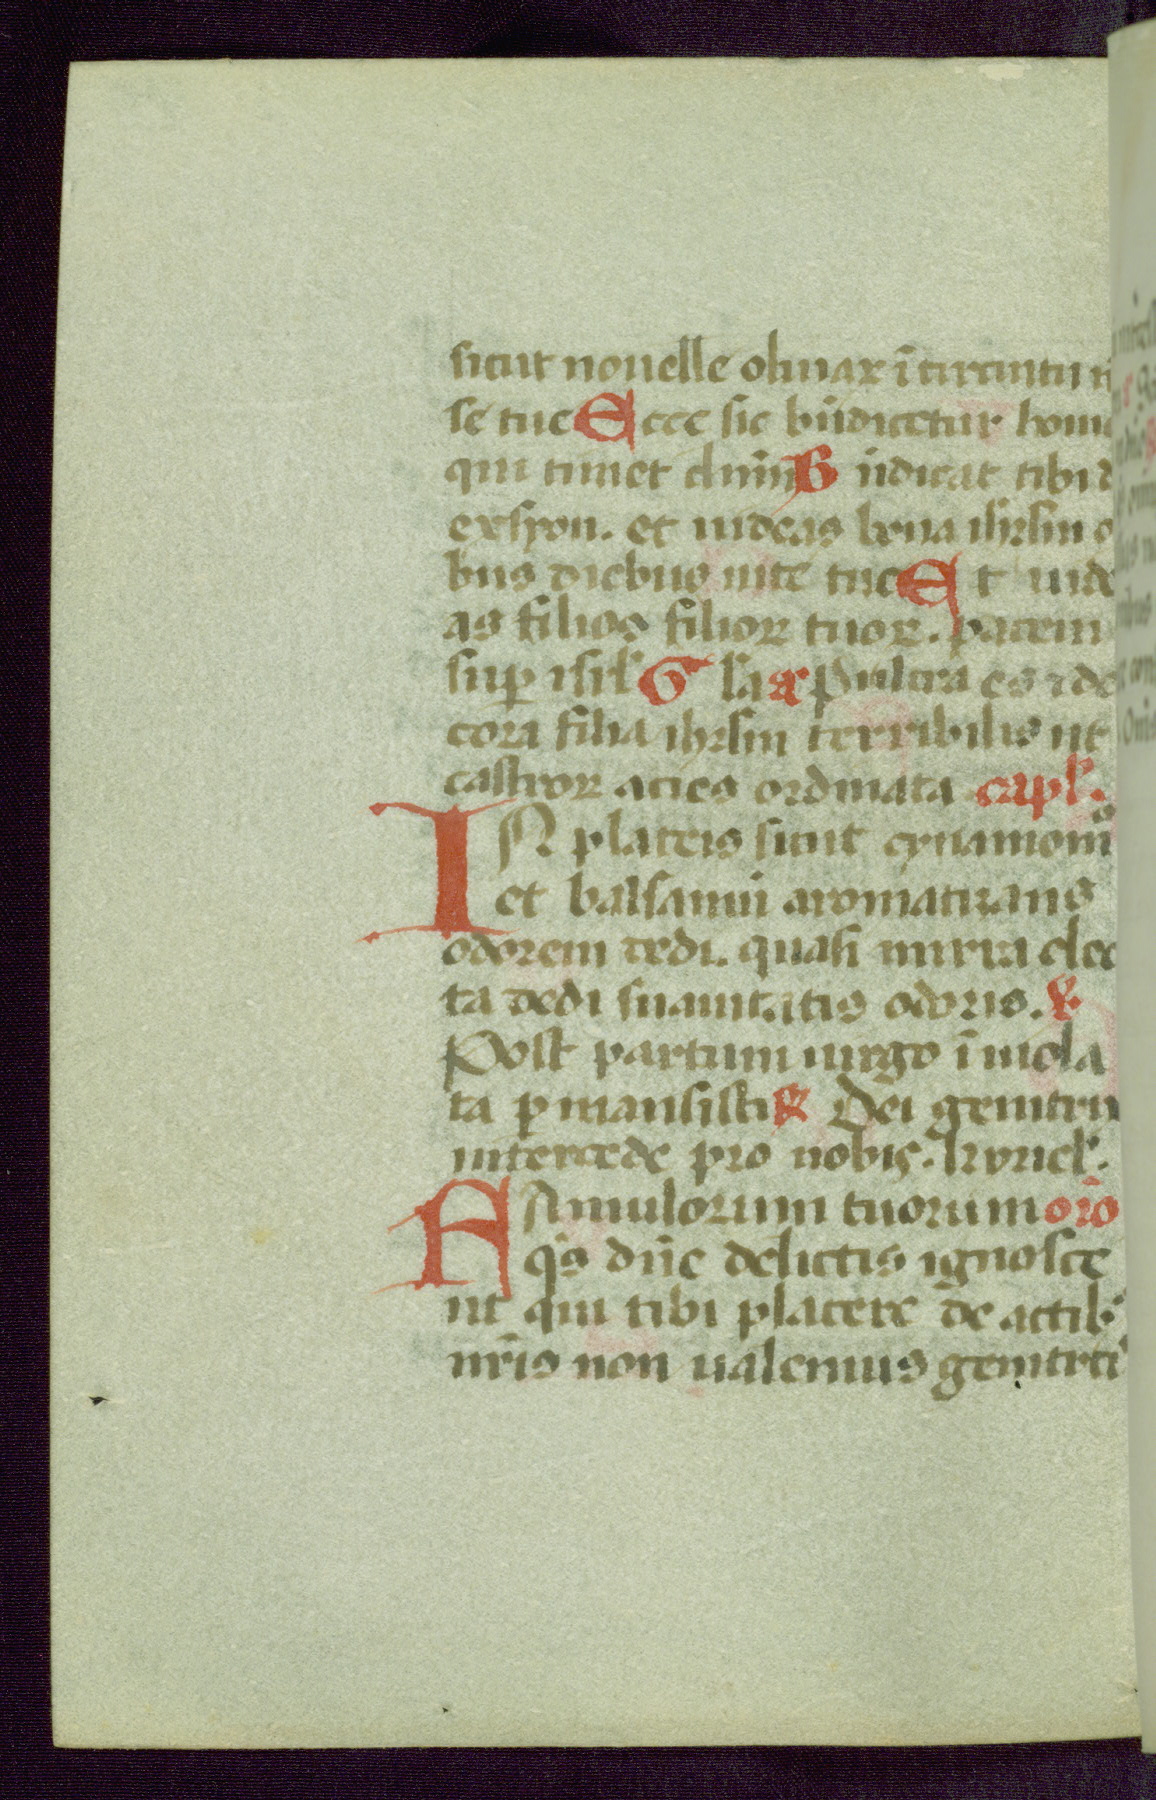 sicut nouelle oliuaꝝ ī circuitu
se tue Ecce sic bn̄dicetur homo
qui timet dnm̄ Bn̄dicat tibi
exsyon. et uideas bona ihrlm
bus diebus uite tue Et uide
as filios filioꝝ tuoꝝ. pacem
suꝑ isrl̄ G la a Pulcra es ⁊ de
cora filia ihrlm terribilis ut
castroꝝ acies ordinata capl̄.
IN plateis sicut cynamomū
et balsamū aromatizans
odorem dedi. quasi mirra elec
ta dedi suauitatis odoris. ℣
Post partum uirgo īuiola
ta ꝑmansisti ℟ Dei genitri
intercede pro nobis. kyriel̄.
FAmulorum tuorum orō
qs dn̄e delictis ignosce
ut qui tibi placere de actib;
nr̄is non ualemus genitrici